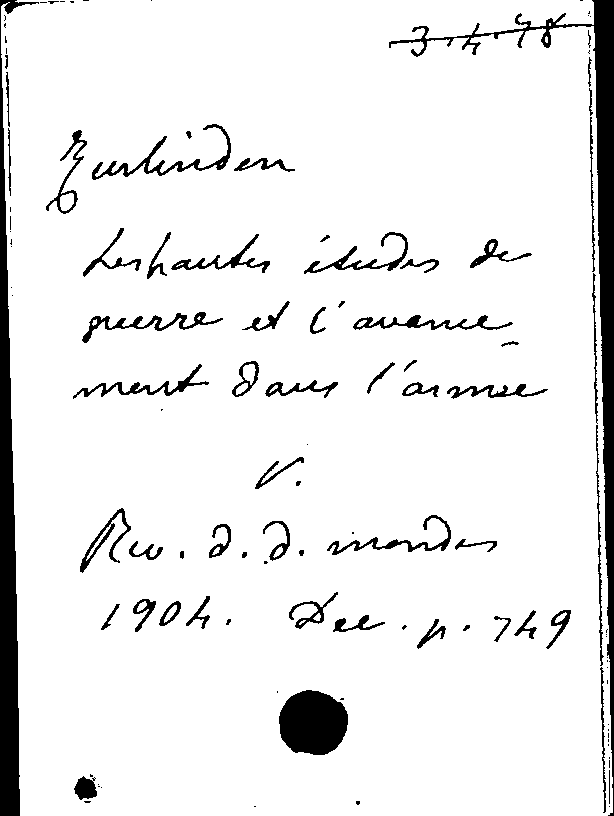 3.4.78
Zurlinden
Les hautes études de
guerre et l'avance-
ment dans l'armée
V.
Rev. d. d. mondes
1904. Dec. p. 749